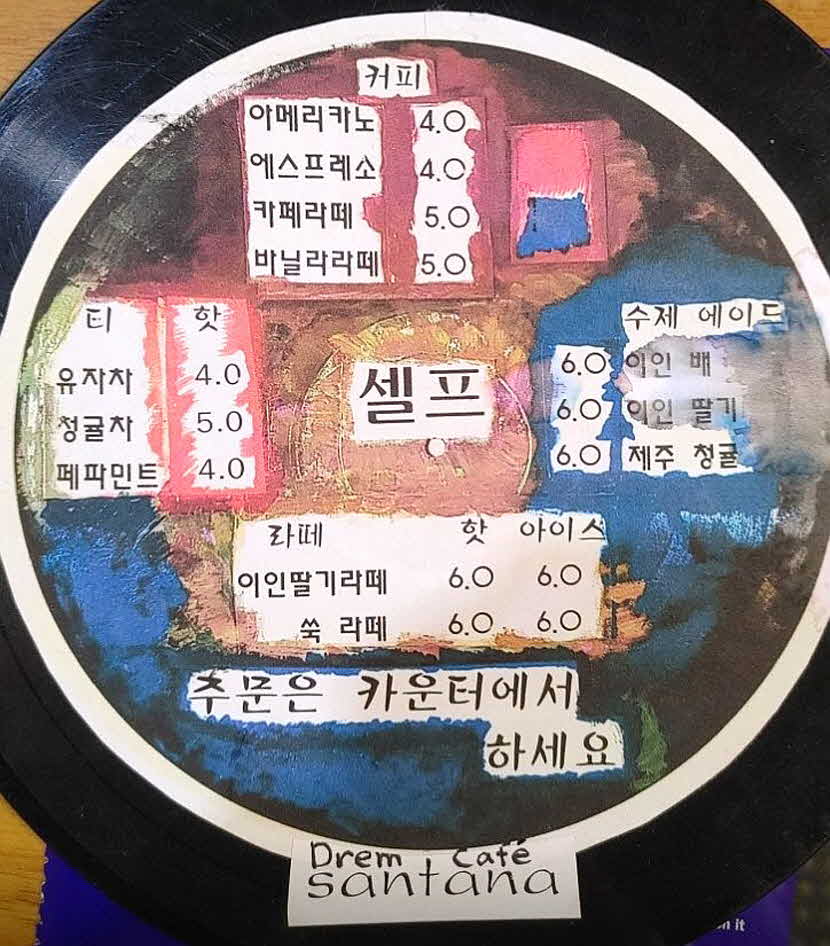 커피
아메리카노 4.0
에스프레소 4.0
카페라떼 5.0
바닐라라떼 5.0
티 핫
유자차 4.0
청귤차 5.0
페파민트 4.0
셀프
수제 에이드
6.0 이인 배
6.0 이인 딸기
6.0 제주 청귤
라떼 핫 아이스
이인딸기라떼 6.0 6.0
쑥 라떼 6.0 6.0
주문은 카운터에서
하세요
Drem Café
santana
it